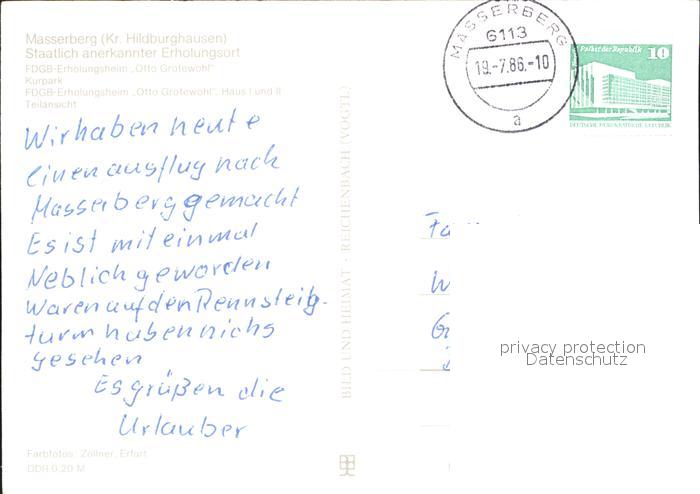 Masserberg (Kr. Hildburghausen)
Staatlich anerkannter Erholungsort
FDGB-Erholungsheim „Otto Grotewohl"
Kurpark
FDGB-Erholungsheim „Otto Grotewohl", Haus I und II
Teilansicht
Wir haben heute
einen ausflug nach
Masserberg gemacht
Es ist mit einmal
Neblich geworden
waren auf den Rennsteig-
turm haben nichs
gesehen
Es grüßen die
Urlauber
Farbfotos: Zöllner, Erfurt
DDR 0,20 M
BILD UND HEIMAT · REICHENBACH (VOGTL)
MASSERBERG
6113
19.-7.86.-10
a
Palast der Republik 10
DEUTSCHE DEMOKRATISCHE REPUBLIK
Fa
W
G
privacy protection
Datenschutz